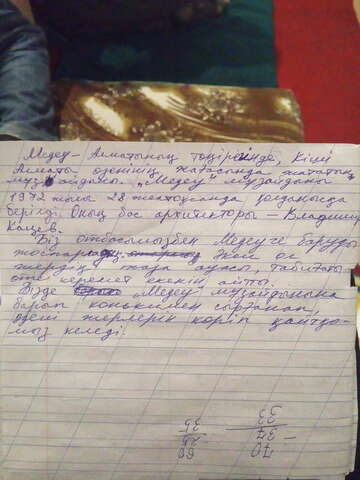 Медеу - Алматының төңірегінде, Кіші
Алматы өзенінің жағасында жатқан
мұз айдыны. "Медеу" мұзайданы
1972 жылы 28 желтоқсанда қолданысқа
берілді. Оның бас архитекторы - Владимир
Кацев.
Біз отбасымызбен Медеуге баруды
жоспарлад. Әкем ол
жердің таза ауасы, табиғаты
өте керемет екенін айтты.
Бізде "Медеу" мұзайдынына
барып конькимен сырғанап,
әдемі жерлерін көріп қайтқы-
мыз келеді.
70
- 37
33
60
25
35